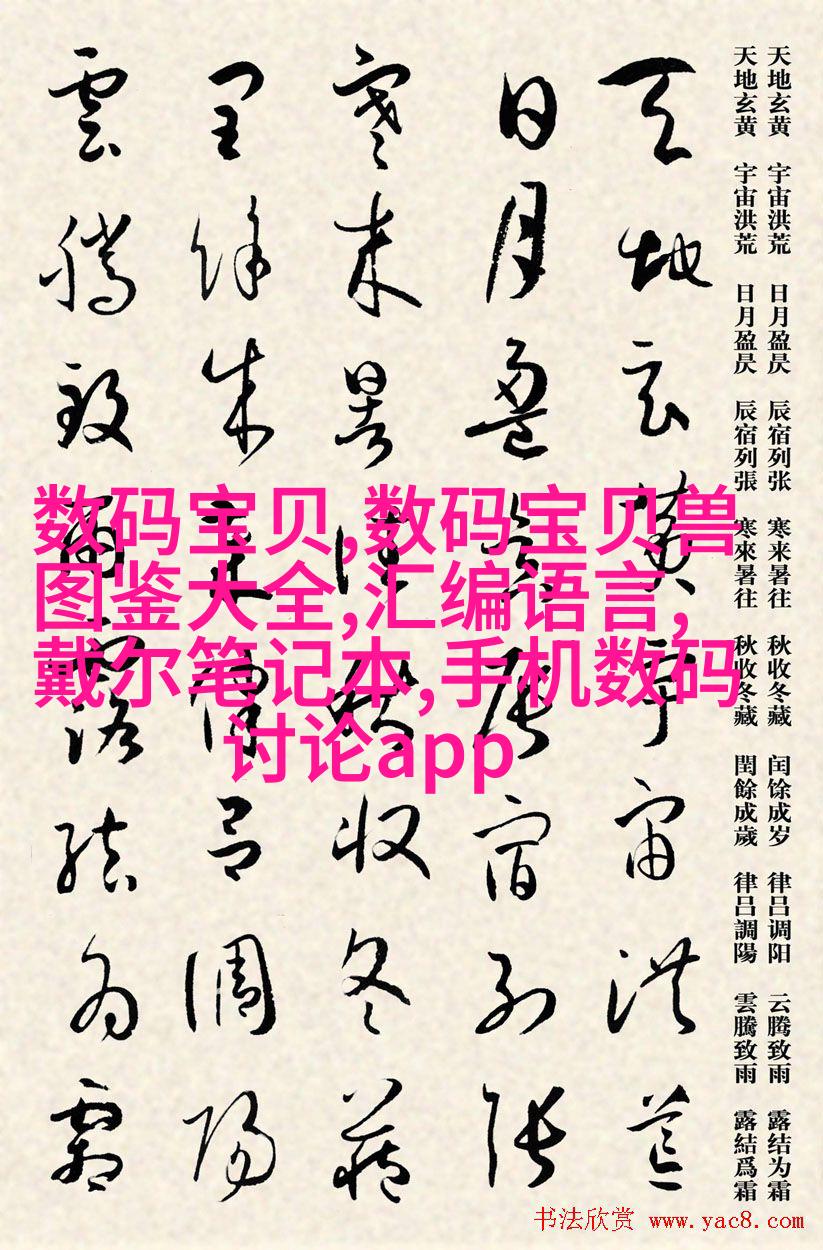 天地玄黄 宇宙洪荒 日月盈昃 辰宿列张 寒来暑往 秋收冬藏 闰馀成岁 律吕调阳 云腾致雨 露结为霜
天地玄黄 宇宙洪荒 日月盈昃 辰宿列張 寒來暑往 秋收冬藏 閏餘成歲 律吕調陽 雲騰致雨 露結爲霜
天地玄黄宇宙洪荒
日月盈昃辰宿列張
寒来暑往秋收冬藏
閏餘成歲律吕調陽
雲騰致雨露結為霜
数码宝贝,数码宝贝兽
图鉴大全,汇编语言,
戴尔笔记本,手机数码
讨论app
书法欣赏 www.yac8.com